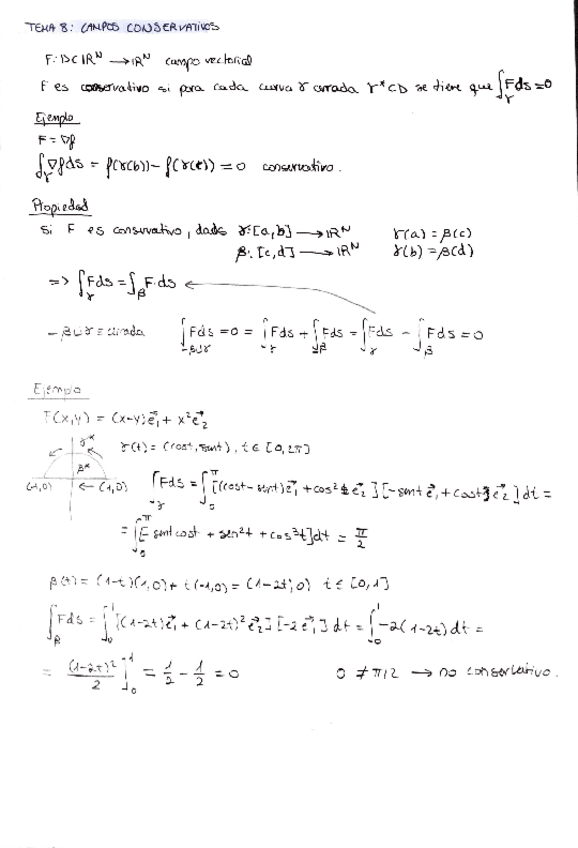 TEMA 8: CAMPOS CONSERVATIVOS
F: D⊂ℝᴺ → ℝᴺ campo vectorial
F es conservativo si para cada curva γ cerrada γ*⊂D se tiene que ∫_γ Fds = 0
Ejemplo
F = ∇f
∫_γ ∇f ds = f(γ(b)) - f(γ(t)) = 0 conservativo.
Propiedad
Si F es conservativo, dados γ: [a,b] → ℝᴺ γ(a) = β(c)
β: [c,d] → ℝᴺ γ(b) = β(d)
=> ∫_γ Fds = ∫_β F·ds ←
-β∪γ = cerrada ∫_{-β∪γ} Fds = 0 = ∫_γ Fds + ∫_{-β} Fds = ∫_γ Fds - ∫_β Fds = 0
Ejemplo
F(x,y) = (x-y)e⃗₁ + x²e⃗₂
γ*
γ(t) = (cost, sint), t ∈ [0,2π]
β*
(-1,0) ← (1,0)
∫_γ Fds = ∫₀^π [(cost - sent)e⃗₁ + cos²t e⃗₂][-sent e⃗₁ + cost e⃗₂]dt =
= ∫₀^π [-sent cost + sen²t + cos³t]dt = π/2
β(t) = (1-t)(1,0) + t(-1,0) = (1-2t, 0) t ∈ [0,1]
∫_β Fds = ∫₀¹ [(1-2t)e⃗₁ + (1-2t)²e⃗₂][-2e⃗₁]dt = ∫₀¹ -2(1-2t)dt =
= (1-2t)²/2 ]₀¹ = 1/2 - 1/2 = 0 0 ≠ π/2 → no conservativo.